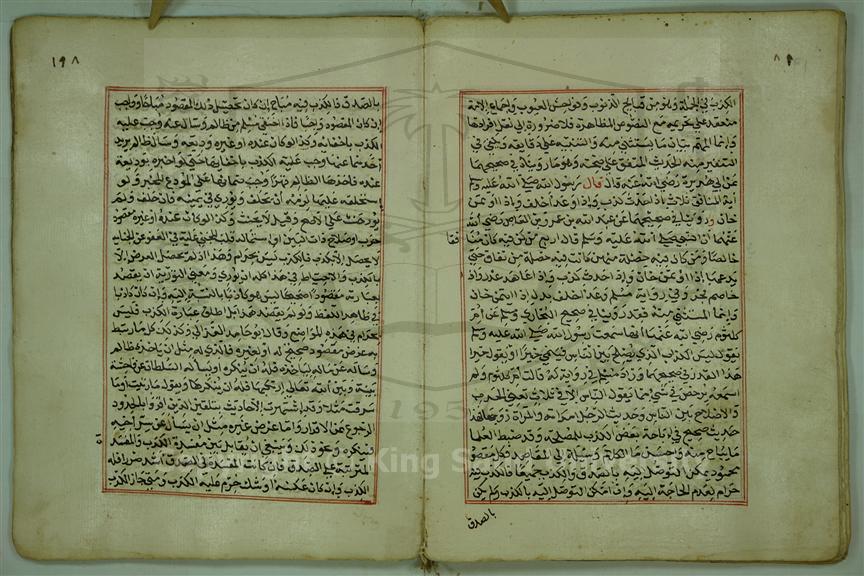 ٨٩
الكذب في الجملة وهو من قبايح الذنوب وفواحش العيوب واجماع الامة
منعقد على تحريمه مع النصوص المتظاهرة فلا ضرورة الى نقل افرادها
وانما المهم بيان ما يستثنى منه والتنبيه على دقايقه ويكفي في
التنفير منه الحديث المتفق على صحته وهو ما رويناه في صحيحهما
عن ابي هريرة رضي الله عنه قال قال رسول الله صلى الله عليه وسلم
آية المنافق ثلاث اذا حدث كذب واذا وعد اخلف واذا اوتمن
خان وروينا في صحيحهما عن عبد الله بن عمرو بن العاص رضي الله
عنهما ان النبي صلى الله عليه وسلم قال اربع من كن فيه كان منافقا
خالصا ومن كان فيه خصلة منهن كانت فيه خصلة من نفاق حتى
يدعها اذا اوتمن خان واذا حدث كذب واذا عاهد غدر واذا
خاصم فجر وفي رواية مسلم وعد اخلف بدل اذا ايتمن خان
وانما المستثنى منه فقد روينا في صحيح البخاري ومسلم عن ام
كلثوم رضي الله عنها انها سمعت رسول الله صلى الله عليه وسلم
يقول ليس الكذب الذي يصلح بين الناس فينمي خيرا او يقول خيرا
هذا القدر في صحيحهما وزاد مسلم في رواية له قالت ام كلثوم ولم
اسمعه يرخص في شي مما يقول الناس الا في ثلاث تعني الحرب
والاصلاح بين الناس وحديث الرجل امراته والمراة زوجها فهذا
حديث صحيح في اباحة بعض الكذب للمصلحة وقد ضبط العلما
ما يباح منه واحسن ما الكلام وسيلة الى المقاصد فكل مقصود
محمود يمكن التوصل اليه بالصدق والكذب جميعا فالكذب فيه
حرام لعدم الحاجة اليه وان امكن التوصل اليه بالكذب ولم يكن
بالصدق
١٩٨
بالصدق فالكذب فيه مباح ان كان تحصيل ذلك المقصود مباحا وواجب
ان كان المقصود واجبا فاذا اختفى مسلم من ظالم وسال عنه وجب عليه
الكذب باخفايه وكذا لو كان عنده او غيره وديعة وسال ظالم يريد
اخذها عنها وجب عليه الكذب باخفايها حتى لو اخبره بوديعة
عنده فاخذها الظالم قهرا وجب ضمانها على المودع المخبر ولو
استحلفه عليها لزمه ان يحلف ويوري في يمينه فان حلف ولم
يور حنث على الاصح وقيل لا يحنث وكذا لو كان مقصود
حرب او صلاح ذات البين او استمالة قلب المجني عليه في العفو عن الجناية
لا يحصل الا بكذب فالكذب ليس بحرام وهذا اذا لم يحصل الغرض الا
بالكذب والاحتياط في هذا كله ان يوري ومعنى التورية ان يقصد
بعبارته مقصودا صحيحا ليس هو كاذبا بالنسبة اليه وان كان كاذبا
في ظاهر اللفظ ولو لم يقصد هذا بل اطلق عبارة الكذب فليس
بحرام في هذه المواضع وقال ابو حامد الغزالي وكذلك كل ما ارتبط
به غرض مقصود صحيح له او لغيره فالذي له مثل ان ياخذه ظالم
وساله عن ماله لياخذه فله ان ينكره او يساله السلطان عن فاحشة
بينه وبين الله تعالى ارتكبها فله ان ينكرها ويقول ما زنيت او ما
سرقت مثلا وقد اشتهرت الاحاديث بتلقين الذين اقروا بالحدود
الرجوع عن الاقرار واما غرض غيره مثل ان يسال عن سر اخيه
فينكره ونحو ذلك وينبغي ان يقابل بين مفسدة الكذب والمفسدة
المترتبة على الصدق فان كانت المفسدة في الصدق اشد ضررا فله
الكذب وان كان عكسه او شك حرم عليه الكذب ومتى جاز الكذب